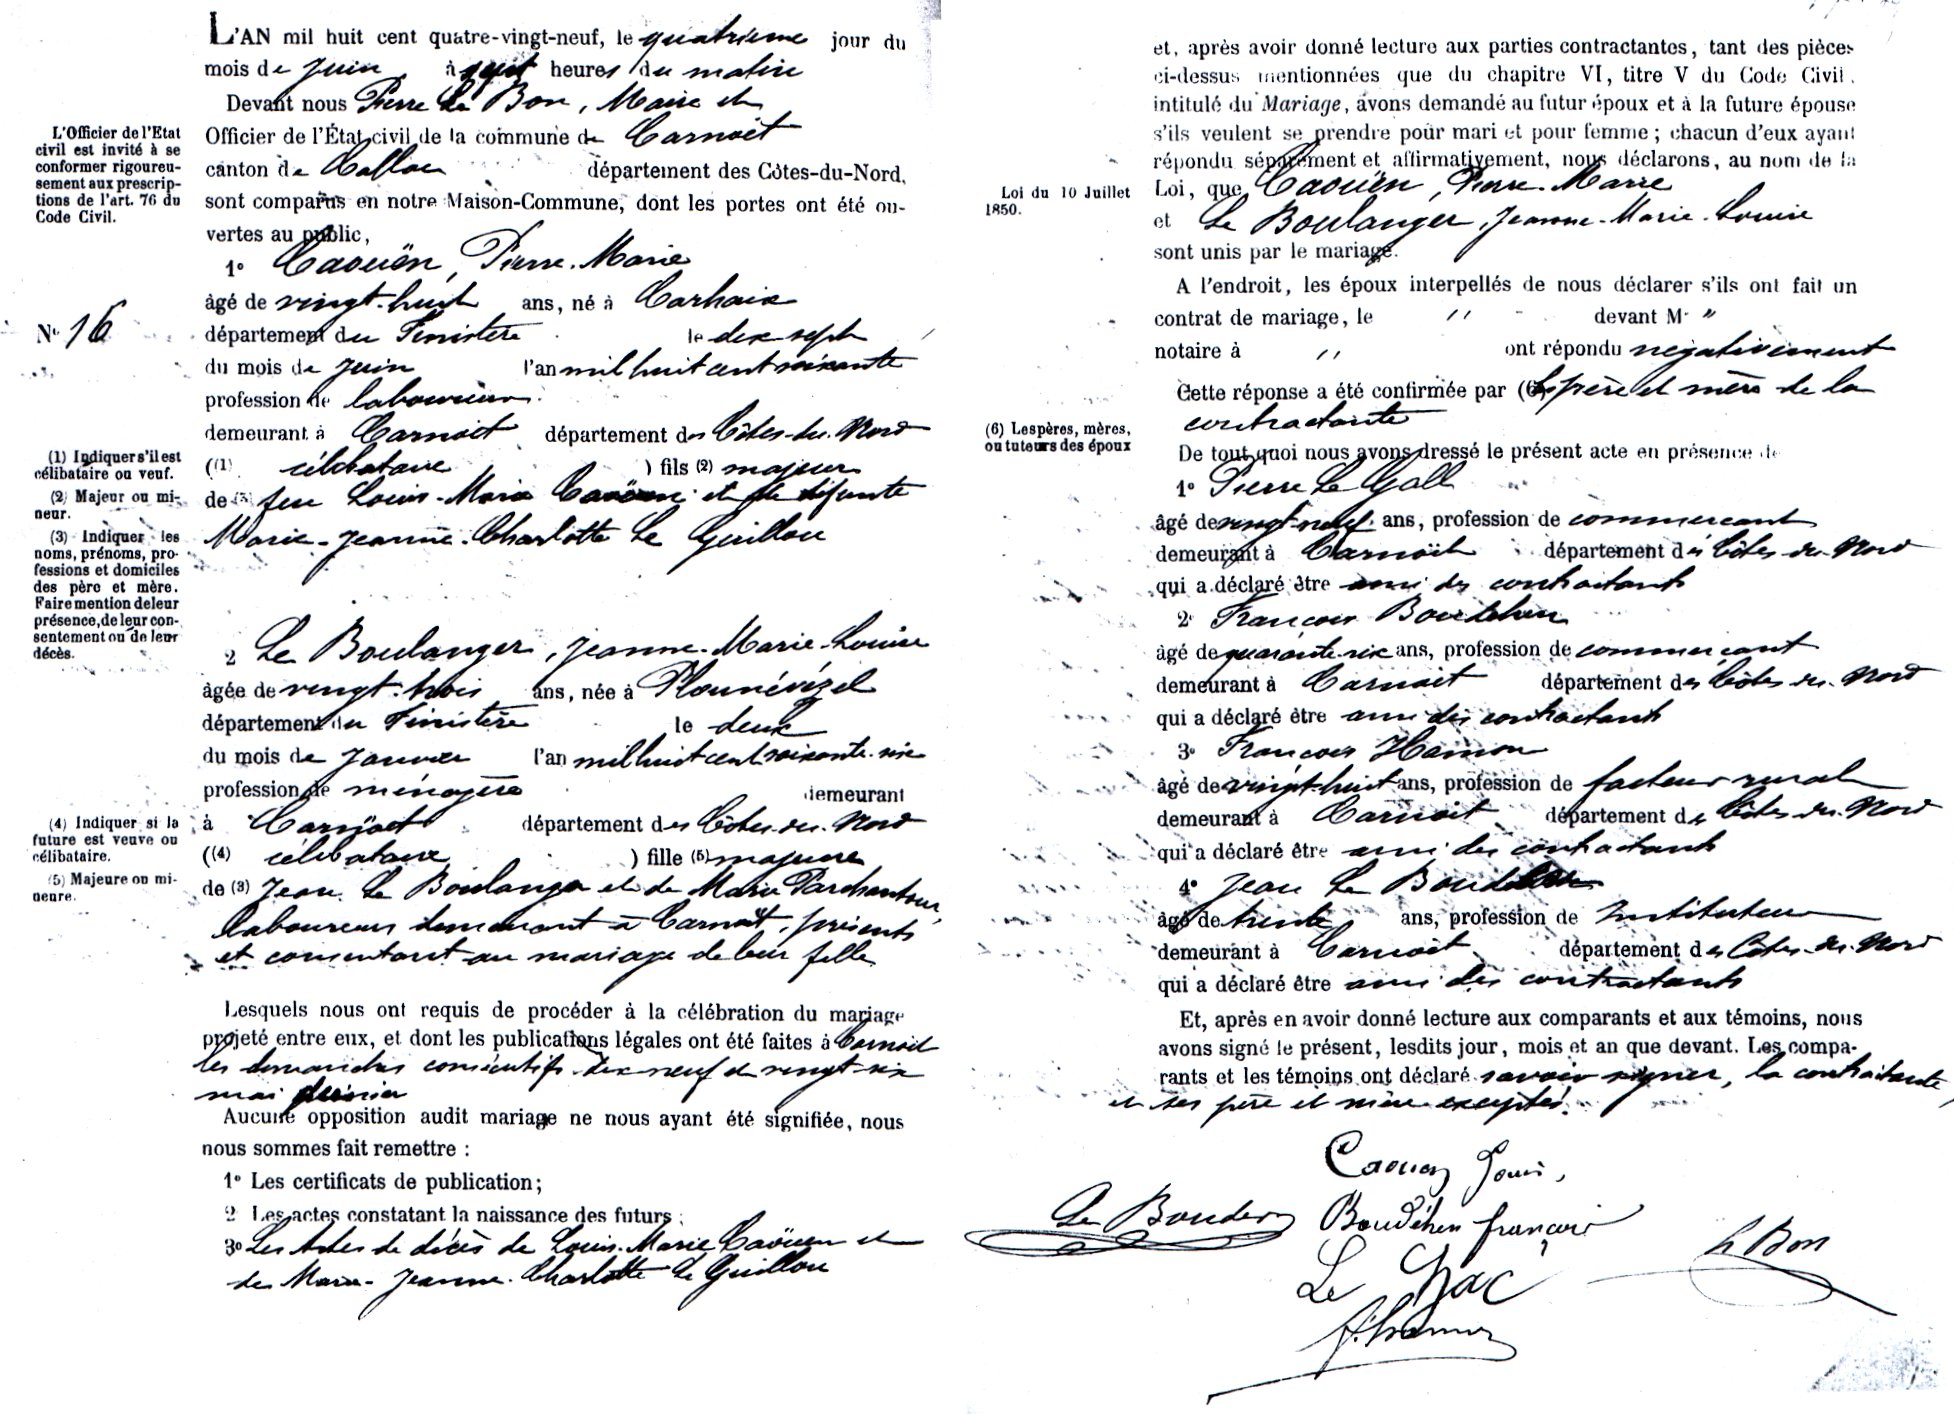 L'AN mil huit cent quatre-vingt-neuf, le quatrième jour du
mois de juin à sept heures du matin
Devant nous Pierre Le Bon, Maire et
Officier de l'État civil de la commune de Carnoët
canton de Callac département des Côtes-du-Nord,
sont comparus en notre Maison-Commune, dont les portes ont été ou-
vertes au public,
1° Caouën, Pierre-Marie
âgé de vingt-huit ans, né à Carhaix
département du Finistère le dix-sept
du mois de juin l'an mil huit cent soixante
profession de laboureur
demeurant à Carnoët département des Côtes-du-Nord
((1) célibataire ) fils (2) majeur
de (3) feu Louis-Marie Caouën et de défunte
Marie-Jeanne-Charlotte Le Guillou
2 Le Boulanger, Jeanne-Marie-Louise
âgée de vingt-trois ans, née à Plounévézel
département du Finistère le deux
du mois de janvier l'an mil huit cent soixante-six
profession de ménagère demeurant
à Carnoët département des Côtes-du-Nord
((4) célibataire ) fille (5) majeure
de (3) Jean Le Boulanger et de Marie Parchantour,
laboureurs demeurant à Carnoët, présents
et consentant au mariage de leur fille
Lesquels nous ont requis de procéder à la célébration du mariage
projeté entre eux, et dont les publications légales ont été faites à Carnoët
les dimanches consécutifs dix-neuf et vingt-six
mai dernier
Aucune opposition audit mariage ne nous ayant été signifiée, nous
nous sommes fait remettre :
1° Les certificats de publication;
2 Les actes constatant la naissance des futurs;
3° Les Actes de décès de Louis-Marie Caouën et
de Marie-Jeanne-Charlotte Le Guillou
L'Officier de l'Etat
civil est invité à se
conformer rigoureu-
sement aux prescrip-
tions de l'art. 76 du
Code Civil.
N° 16
(1) Indiquer s'il est
célibataire ou veuf.
(2) Majeur ou mi-
neur.
(3) Indiquer les
noms, prénoms, pro-
fessions et domiciles
des père et mère.
Faire mention de leur
présence, de leur con-
sentement ou de leur
décès.
(4) Indiquer si la
future est veuve ou
célibataire.
(5) Majeure ou mi-
neure.
et, après avoir donné lecture aux parties contractantes, tant des pièces
ci-dessus mentionnées que du chapitre VI, titre V du Code Civil,
intitulé du Mariage, avons demandé au futur époux et à la future épouse
s'ils veulent se prendre pour mari et pour femme; chacun d'eux ayant
répondu séparément et affirmativement, nous déclarons, au nom de la
Loi, que Caouën, Pierre-Marie
et Le Boulanger, Jeanne-Marie-Louise
sont unis par le mariage.
A l'endroit, les époux interpellés de nous déclarer s'ils ont fait un
contrat de mariage, le " devant M° "
notaire à " ont répondu négativement
Cette réponse a été confirmée par (6) les père et mère de la
contractante
De tout quoi nous avons dressé le présent acte en présence de
1° Pierre Le Gall
âgé de vingt-neuf ans, profession de commerçant
demeurant à Carnoët département des Côtes-du-Nord
qui a déclaré être ami des contractants
2° François Boudéhen
âgé de quarante-six ans, profession de commerçant
demeurant à Carnoët département des Côtes-du-Nord
qui a déclaré être ami des contractants
3° François Hamon
âgé de vingt-huit ans, profession de facteur rural
demeurant à Carnoët département des Côtes-du-Nord
qui a déclaré être ami des contractants
4° Jean Le Bouder
âgé de trente ans, profession de Instituteur
demeurant à Carnoët département des Côtes-du-Nord
qui a déclaré être ami des contractants
Et, après en avoir donné lecture aux comparants et aux témoins, nous
avons signé le présent, lesdits jour, mois et an que devant. Les compa-
rants et les témoins ont déclaré savoir signer, la contractante
et ses père et mère exceptés.
Loi du 10 Juillet
1850.
(6) Les pères, mères,
ou tuteurs des époux
Caouen
Le Bouder Boudéhen françois
Le Bon
Le